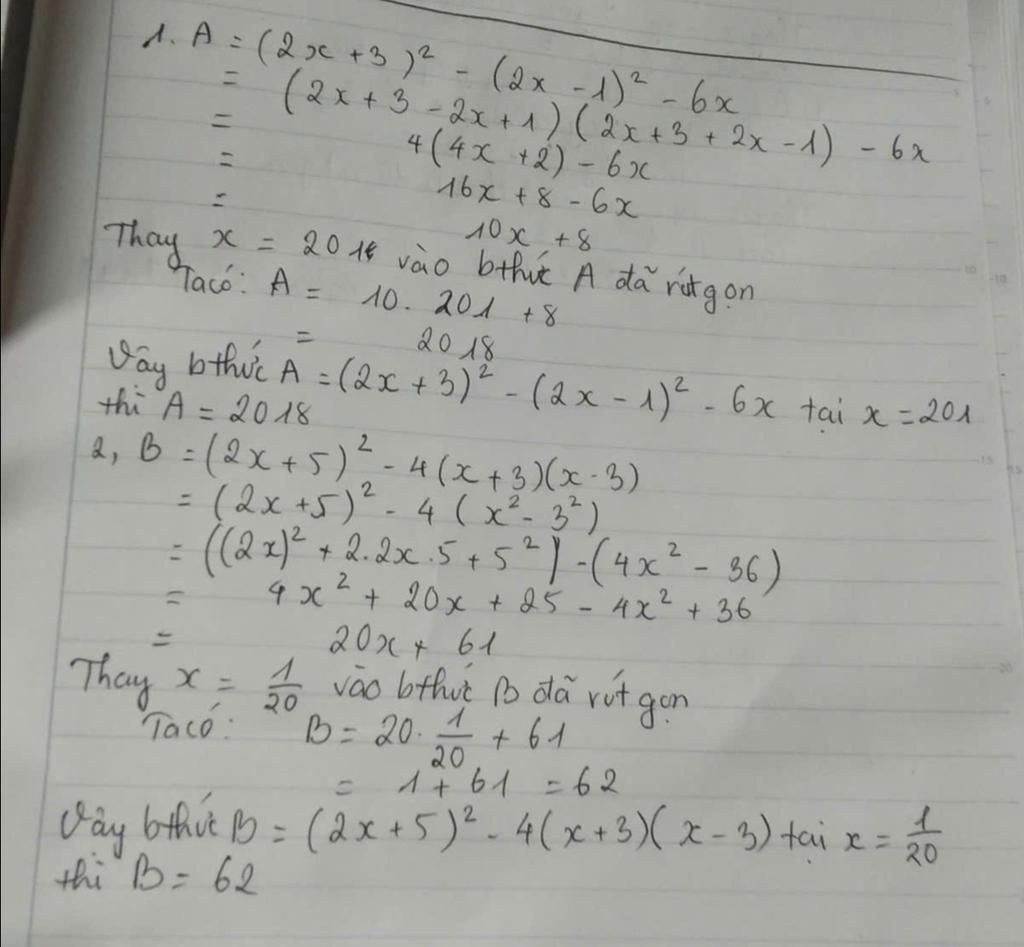 1. A = (2x + 3)² - (2x - 1)² - 6x
= (2x + 3 - 2x + 1)(2x + 3 + 2x - 1) - 6x
= 4(4x + 2) - 6x
= 16x + 8 - 6x
= 10x + 8
Thay x = 201 vào bthức A đã rút gọn
Ta có: A = 10. 201 + 8
= 2018
Vậy bthức A = (2x + 3)² - (2x - 1)² - 6x tại x = 201
thì A = 2018
2, B = (2x + 5)² - 4(x + 3)(x - 3)
= (2x + 5)² - 4 (x² - 3²)
= ((2x)² + 2.2x.5 + 5²) - (4x² - 36)
= 4x² + 20x + 25 - 4x² + 36
= 20x + 61
Thay x = 1/20 vào bthức B đã rút gọn
Ta có: B = 20. 1/20 + 61
= 1 + 61 = 62
Vậy bthức B = (2x + 5)² - 4(x + 3)(x - 3) tại x = 1/20
thì B = 62